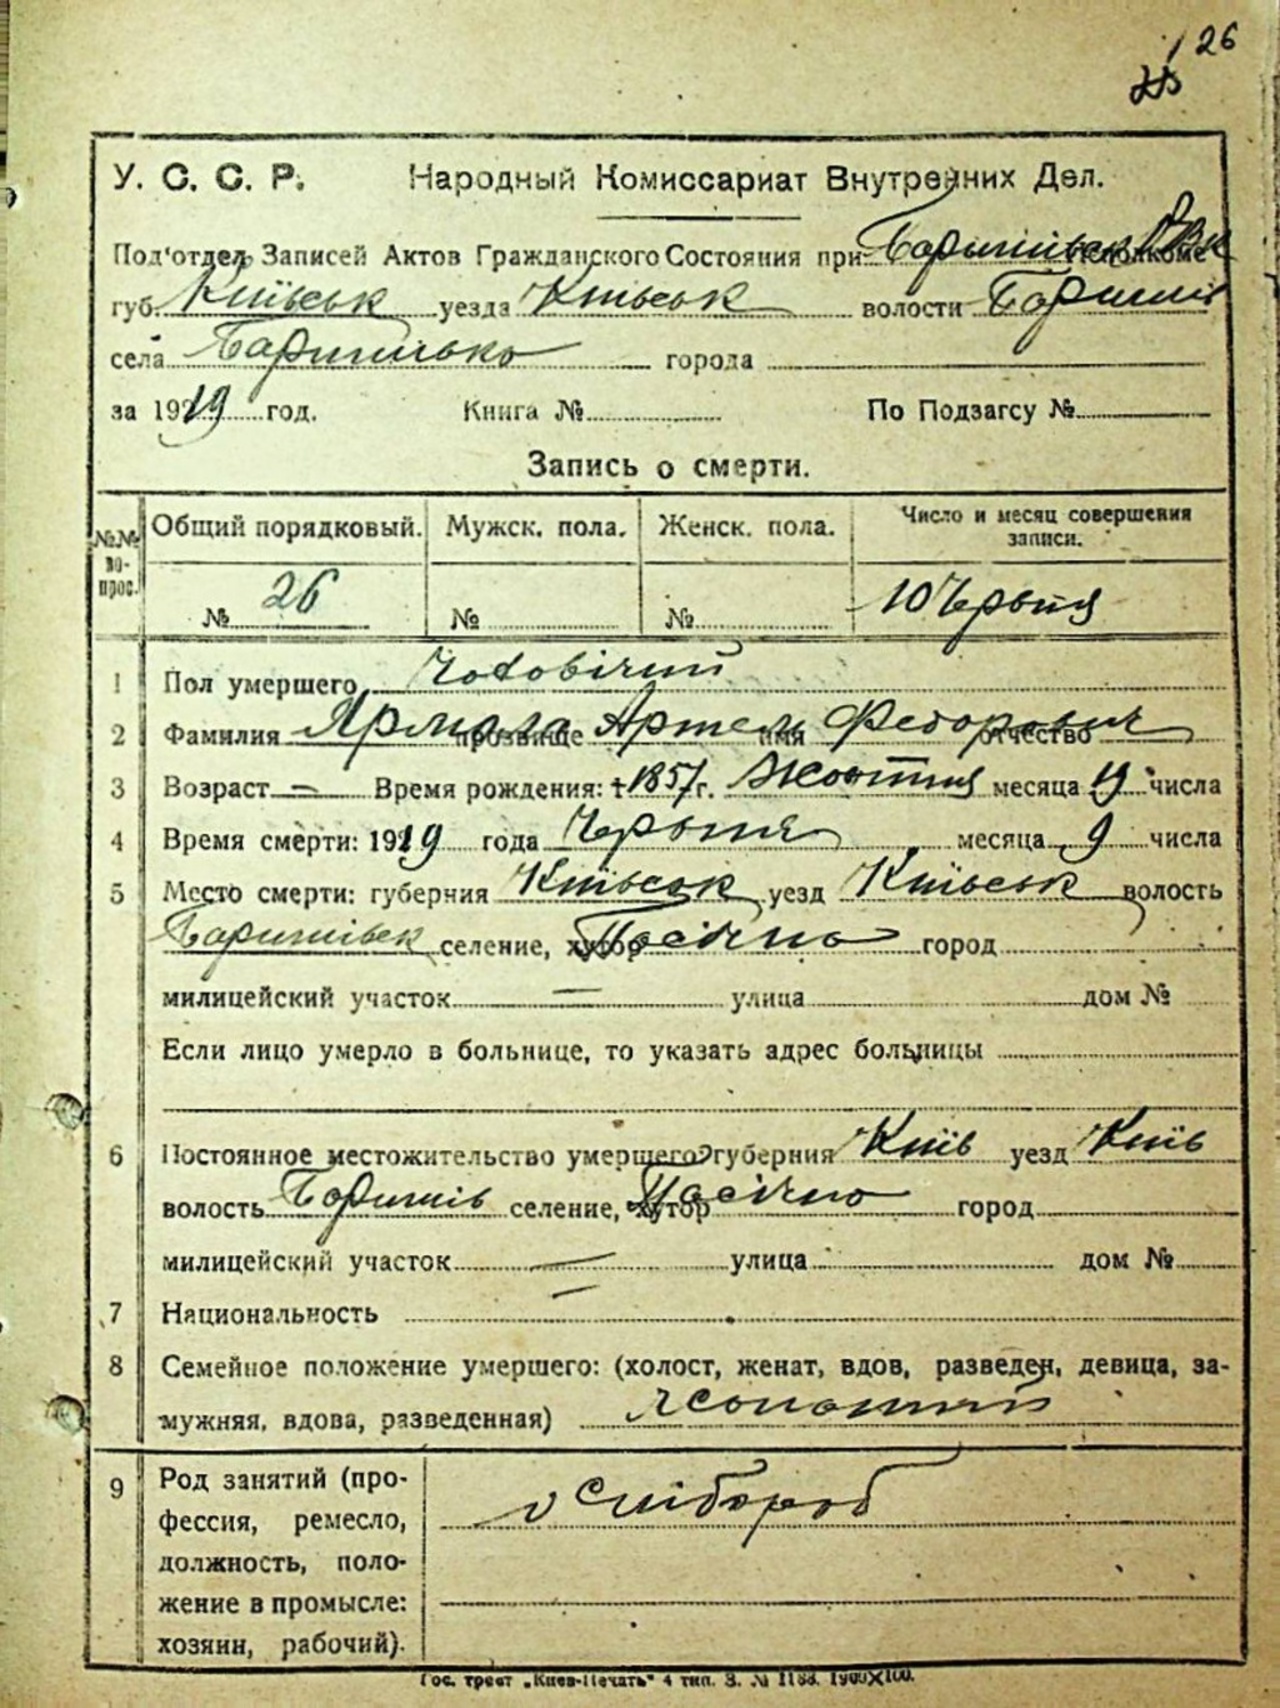 26
У. С. С. Р. Народный Комиссариат Внутренних Дел.
Под'отдел Записей Актов Гражданского Состояния при Исполкоме
губ. Київськ уезда Київськ волости Баришів
села города
за 1919 год. Книга № По Подзагсу №
Запись о смерти.
№№ во-прос. Общий порядковый. Мужск. пола. Женск. пола. Число и месяц совершения записи.
№ 26 № № 10 Червня
1 Пол умершего Чоловічий
2 Фамилия прозвище имя отчество Ярмола Артем Федорович
3 Возраст — Время рождения: 1857 г. Жовтня месяца 19 числа
4 Время смерти: 1919 года Червня месяца 9 числа
5 Место смерти: губерния Київськ уезд Київськ волость
Баришівськ селение, хутор Пасічна город
милицейский участок — улица дом №
Если лицо умерло в больнице, то указать адрес больницы
6 Постоянное местожительство умершего: губерния Київ уезд Київ
волость Баришів селение, хутор Пасічно город
милицейский участок — улица дом №
7 Национальность —
8 Семейное положение умершего: (холост, женат, вдов, разведен, девица, за-
мужняя, вдова, разведенная) жонатий
9 Род занятий (про-
фессия, ремесло,
должность, поло-
жение в промысле:
хозяин, рабочий). хлібороб
Гос. трест „Киев-Печать" 4 тип. З. № 1188. 1900×100.